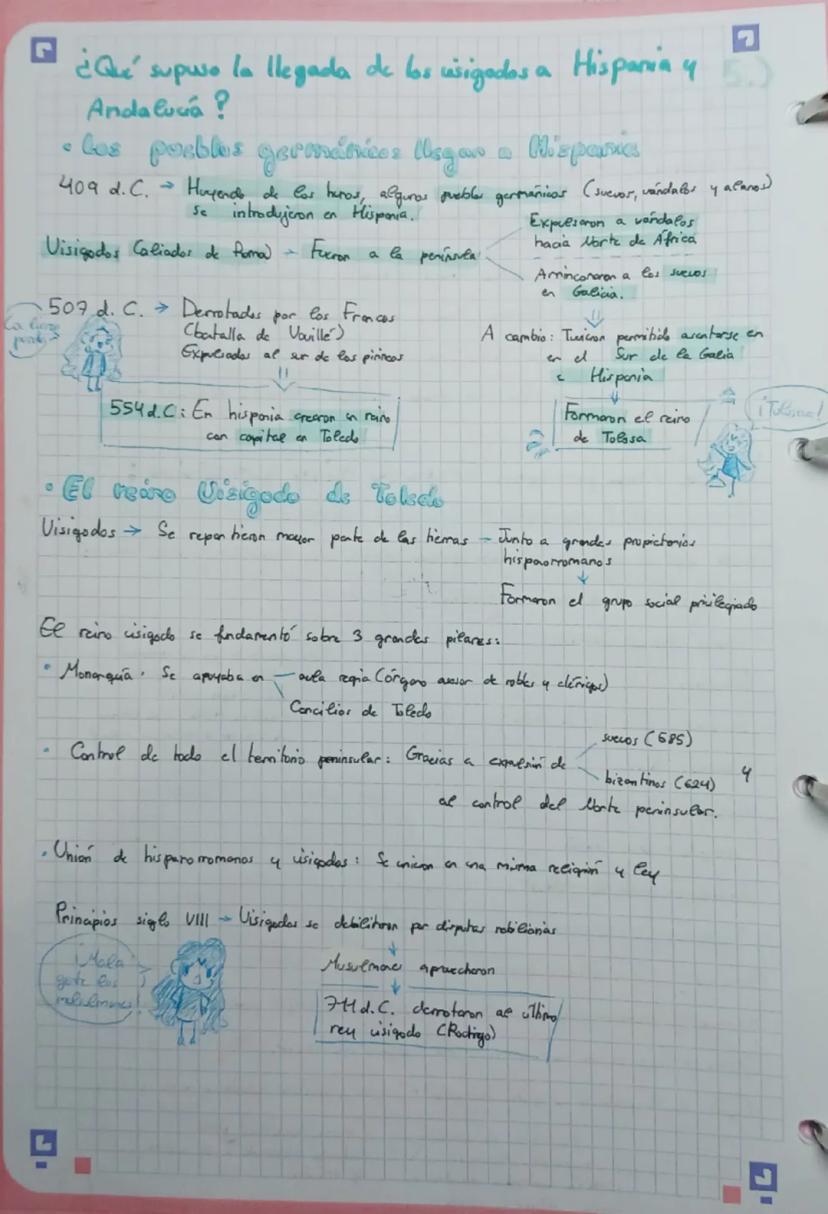 ¿Qué supuso la llegada de los visigodos a Hispania y
Andalucía?
5.)
• Los pueblos germánicos llegan a Hispania
409 d.C. → Huyendo de los hunos, algunos pueblos germánicos (suevos, vándalos y alanos)
se introdujeron en Hispania.
Visigodos (aliados de Roma) → Fueron a la península
Expulsaron a vándalos
hacia Norte de África
Arrinconaron a los suevos
en Galicia.
507 d.C. → Derrotados por los Francos
(batalla de Vouillé)
Expulsados al sur de los pirineos
A cambio: Tuvieron permitido asentarse en
en el Sur de la Galia
e Hispania
554 d.C: En hispania crearon un reino
con capital en Toledo
Formaron el reino
de Tolosa
¡Tolosa!
• El reino Visigodo de Toledo
Visigodos → Se repartieron mayor parte de las tierras - Junto a grandes propietarios
hispanorromanos
↓
Formaron el grupo social privilegiado
El reino visigodo se fundamentó sobre 3 grandes pilares:
• Monarquía: Se apoyaba en
aula regia (órgano asesor de nobles y clérigos)
Concilios de Toledo
• Control de todo el territorio peninsular: Gracias a expulsión de
suevos (585)
bizantinos (624) y
al control del Norte peninsular.
• Unión de hispanorromanos y visigodos: Se unieron en una misma religión y ley
Principios siglo VIII → Visigodos se debilitaron por disputas nobiliarias
↓
Musulmanes aprovecharon
↓
711 d.C. derrotaron al último
rey visigodo (Rodrigo)
¡Mala
gente los
musulmanes!